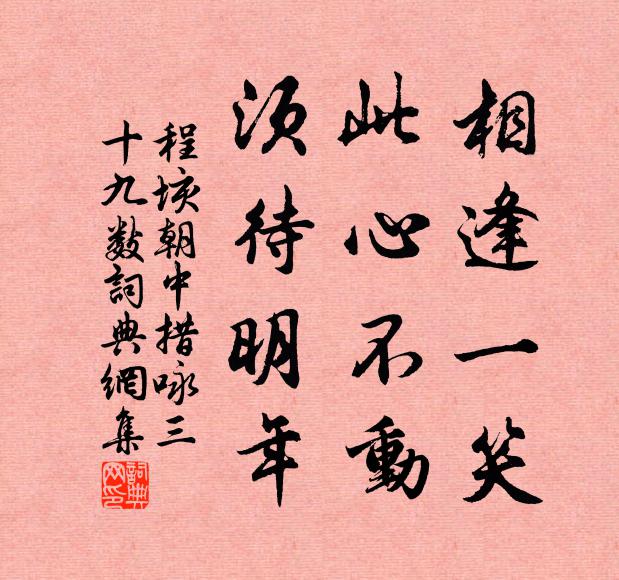 相逢一笑
此心不動
須待明年
程垓朝中措咏三
十九數詞典網集
詞典
网印